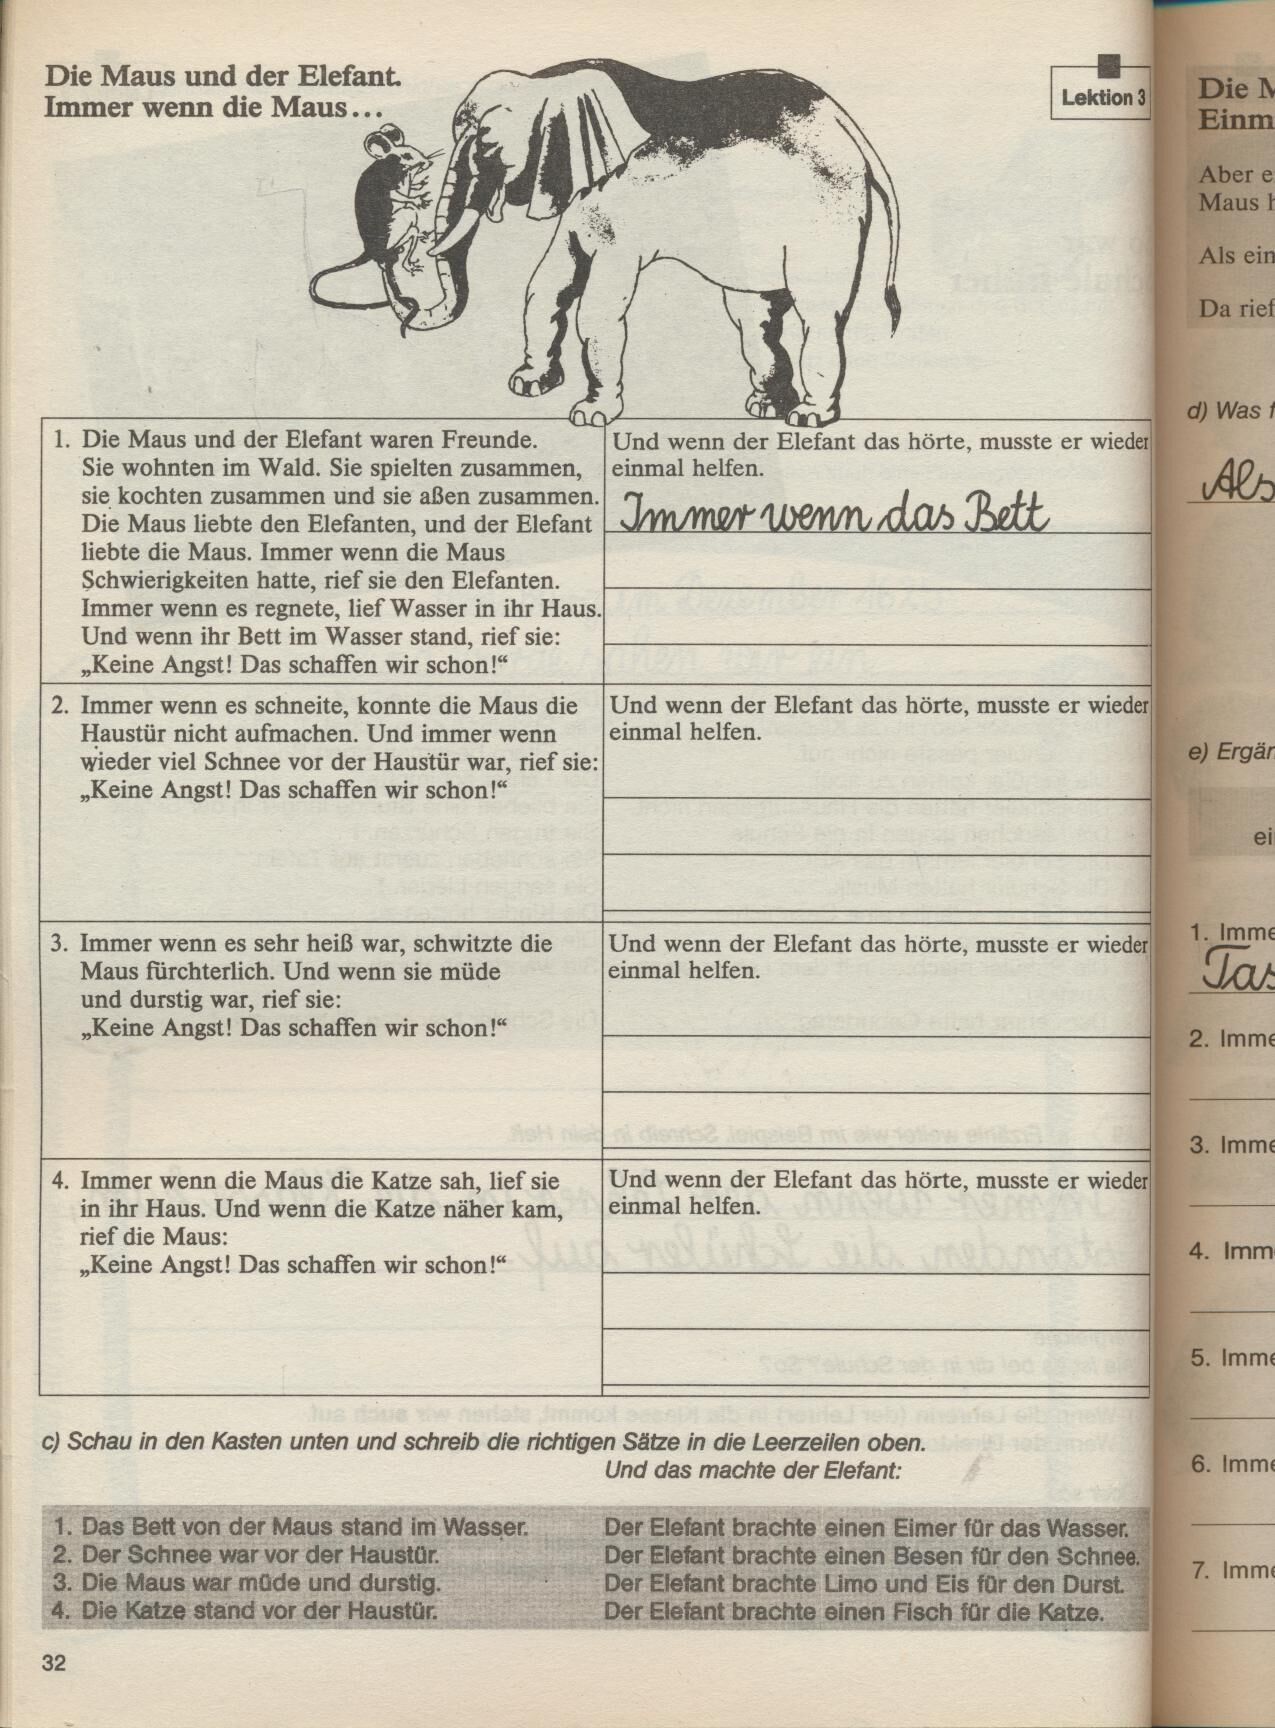 Die Maus und der Elefant.
Immer wenn die Maus...
Lektion 3
1. Die Maus und der Elefant waren Freunde.
Sie wohnten im Wald. Sie spielten zusammen,
sie kochten zusammen und sie aßen zusammen.
Die Maus liebte den Elefanten, und der Elefant
liebte die Maus. Immer wenn die Maus
Schwierigkeiten hatte, rief sie den Elefanten.
Immer wenn es regnete, lief Wasser in ihr Haus.
Und wenn ihr Bett im Wasser stand, rief sie:
„Keine Angst! Das schaffen wir schon!“
Und wenn der Elefant das hörte, musste er wieder
einmal helfen.
Immer wenn das Bett
2. Immer wenn es schneite, konnte die Maus die
Haustür nicht aufmachen. Und immer wenn
wieder viel Schnee vor der Haustür war, rief sie:
„Keine Angst! Das schaffen wir schon!“
Und wenn der Elefant das hörte, musste er wieder
einmal helfen.
3. Immer wenn es sehr heiß war, schwitzte die
Maus fürchterlich. Und wenn sie müde
und durstig war, rief sie:
„Keine Angst! Das schaffen wir schon!“
Und wenn der Elefant das hörte, musste er wieder
einmal helfen.
4. Immer wenn die Maus die Katze sah, lief sie
in ihr Haus. Und wenn die Katze näher kam,
rief die Maus:
„Keine Angst! Das schaffen wir schon!“
Und wenn der Elefant das hörte, musste er wieder
einmal helfen.
c) Schau in den Kasten unten und schreib die richtigen Sätze in die Leerzeilen oben.
Und das machte der Elefant:
1. Das Bett von der Maus stand im Wasser.
2. Der Schnee war vor der Haustür.
3. Die Maus war müde und durstig.
4. Die Katze stand vor der Haustür.
Der Elefant brachte einen Eimer für das Wasser.
Der Elefant brachte einen Besen für den Schnee.
Der Elefant brachte Limo und Eis für den Durst.
Der Elefant brachte einen Fisch für die Katze.
32
Die M
Einm
Aber e
Maus h
Als ein
Da rief
d) Was f
Als
e) Ergän
ei
1. Imme
Tas
2. Imme
3. Imme
4. Imme
5. Imme
6. Imme
7. Imme